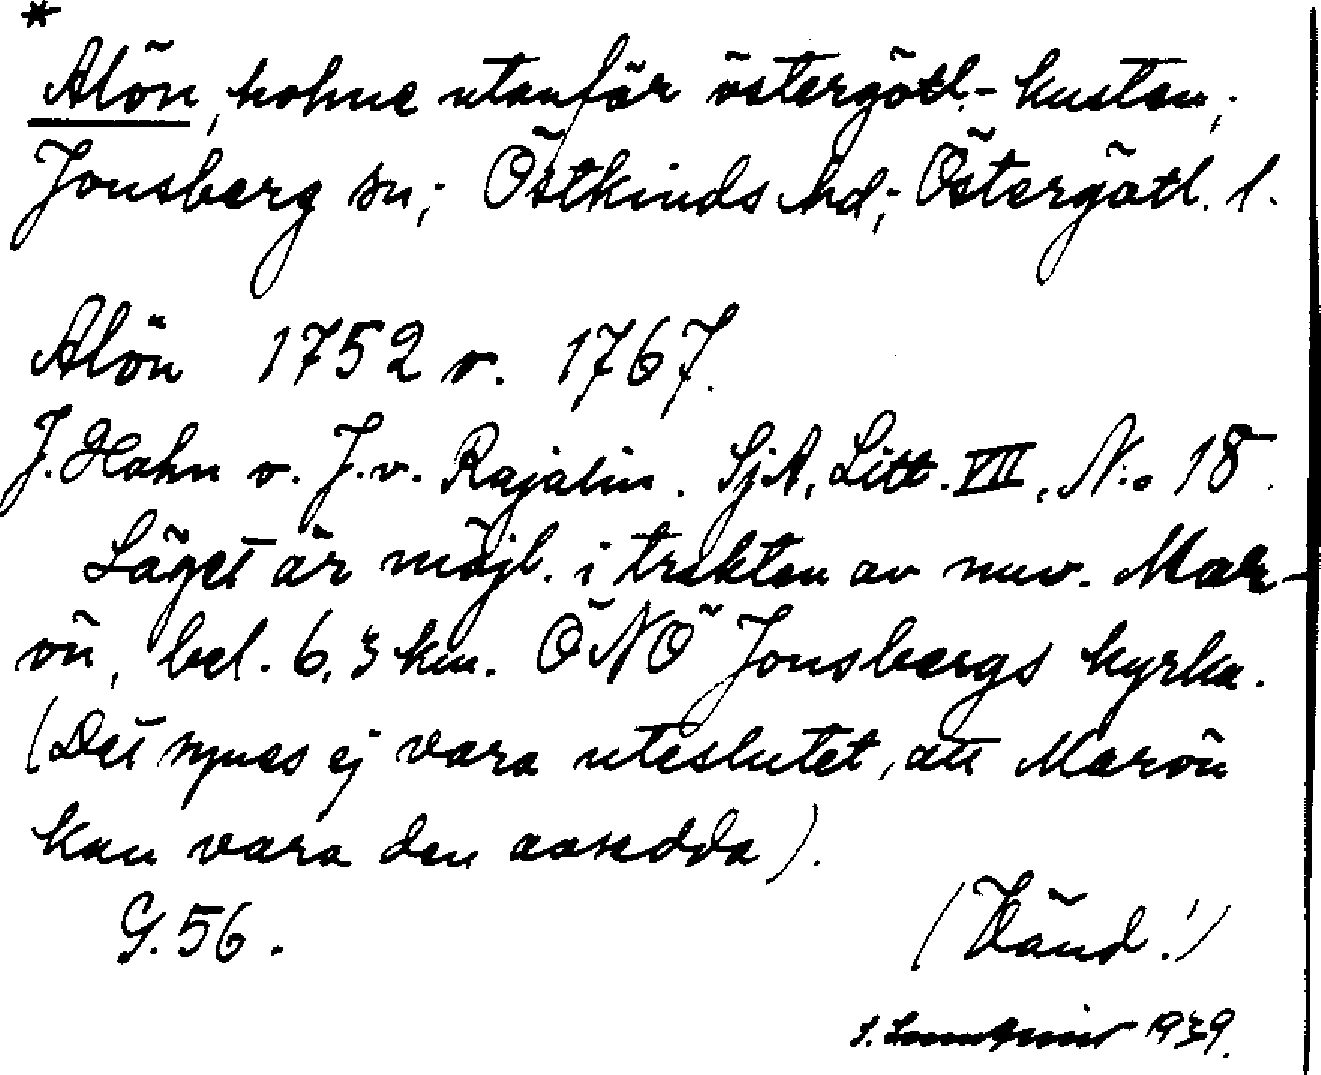 *
Alön, holme utanför östergötl.-kusten,;
Jonsberg sn,; Östkinds hd,; Östergötl. l.
Alön 1752 o. 1767.
J. Hahn o. J. v. Rajalin. SjA, Litt. VII, N:o 18.
Läget är möjl. i trakten av nuv. Mar-
ön, bel. 6,3 km. ÖNÖ Jonsbergs kyrka.
(Det synes ej vara uteslutet, att Marön
kan vara den avsedda).
G. 56.
(Vänd!)
1939.